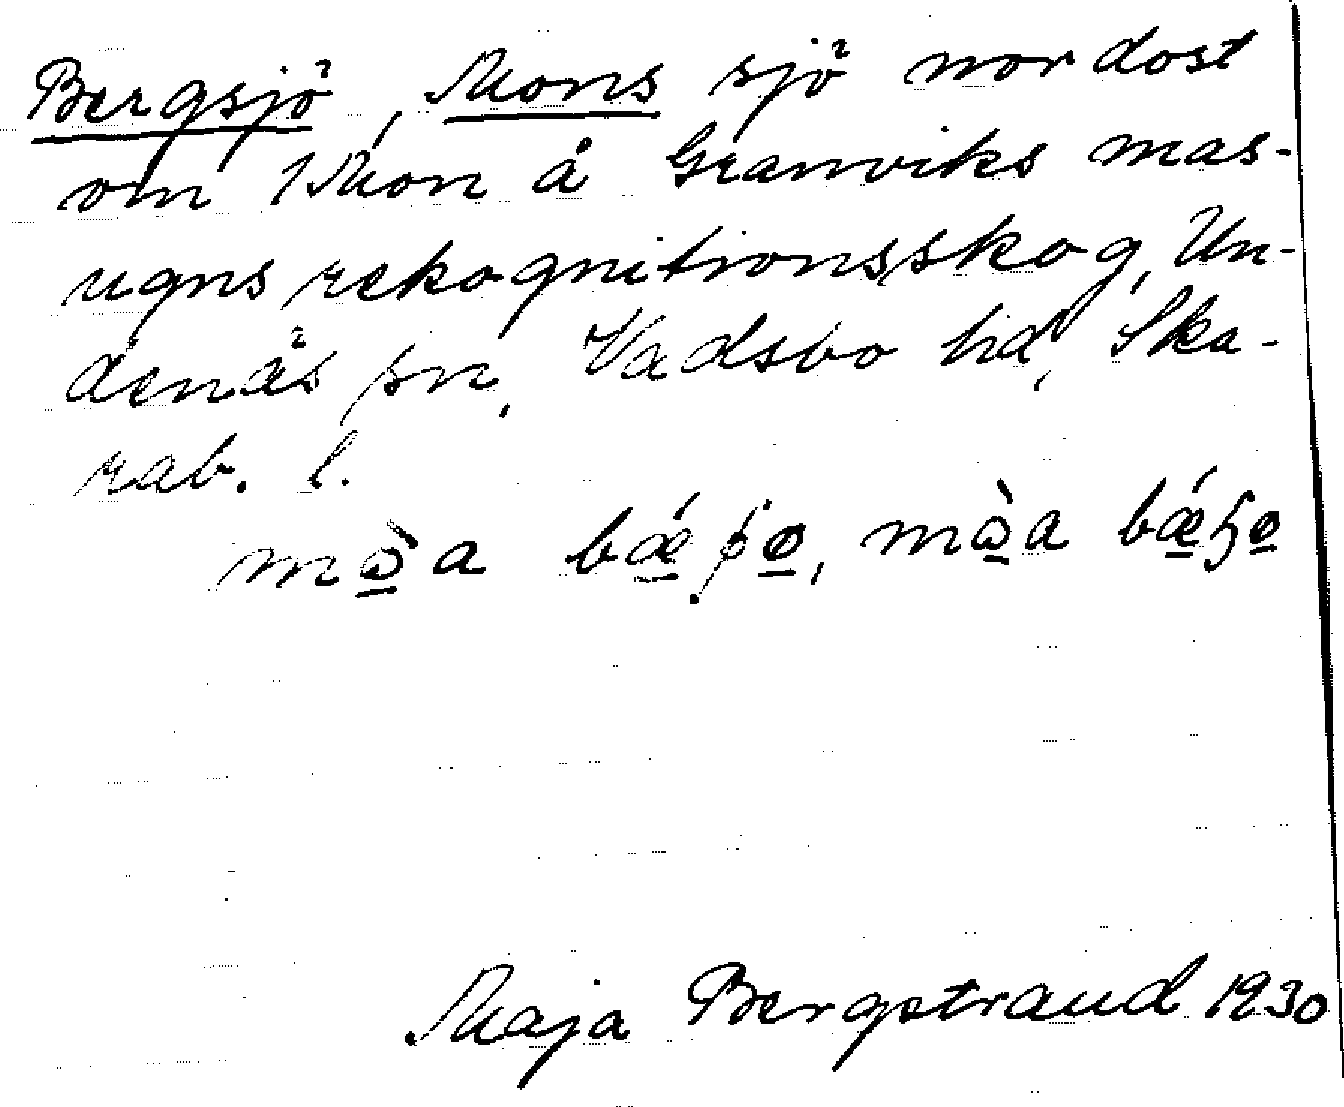 Bergsjö, Mons sjö nordost
om Mon å Granviks mas-
ugns rekognitionsskog, Un-
denäs sn, Vadsbo hd, Ska-
rab. l.
Maja Bergstrand 1930